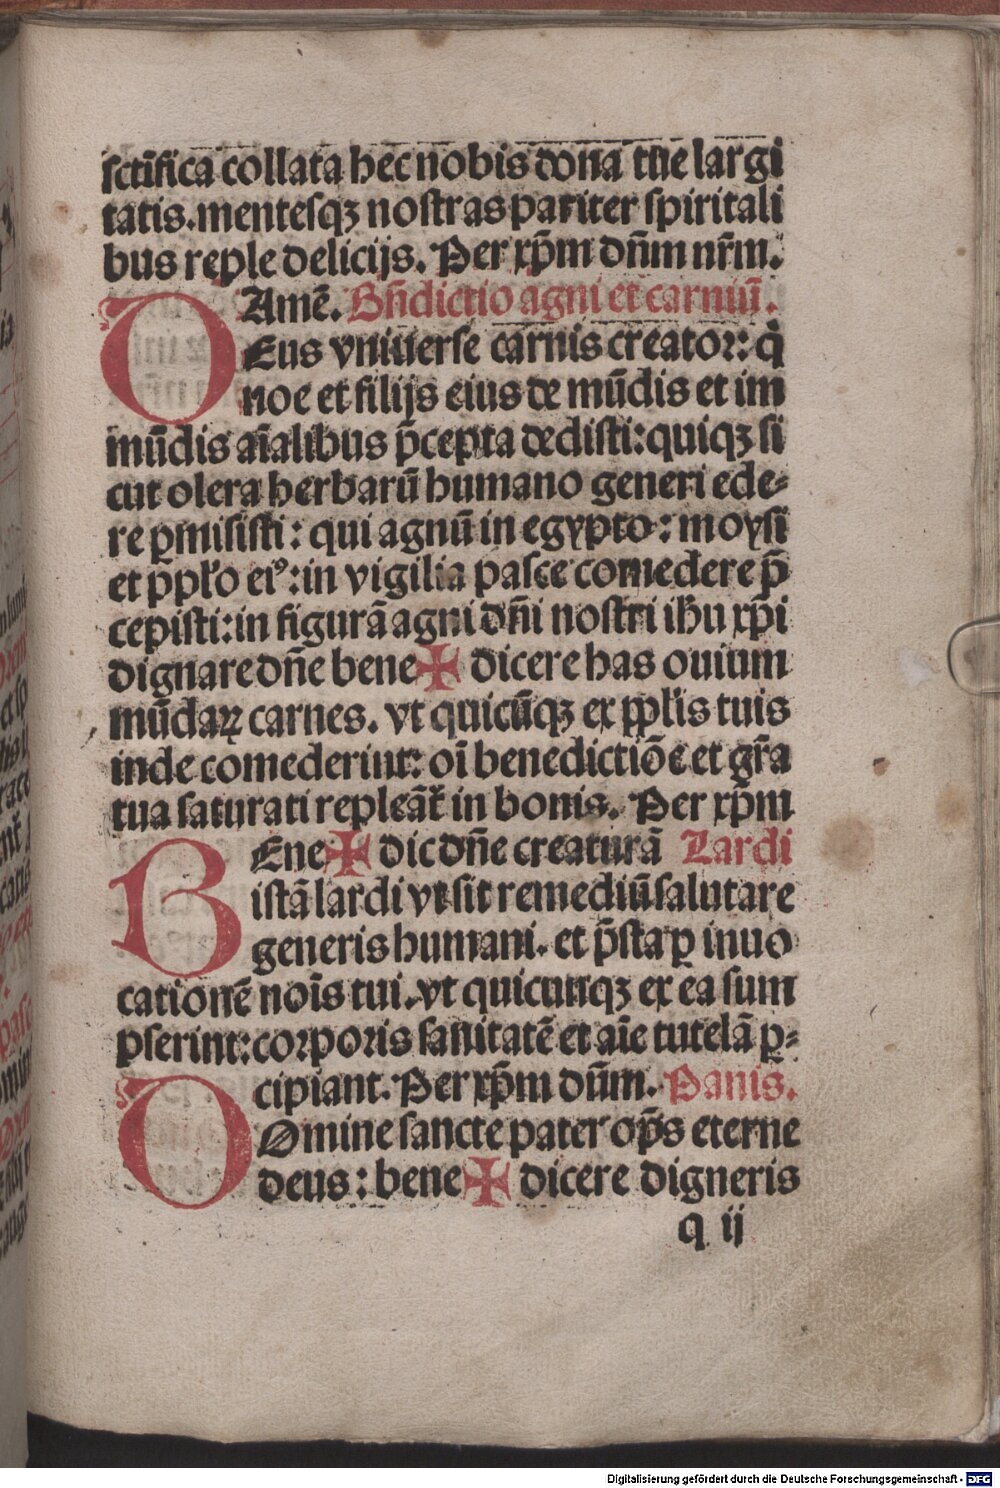 sctīfica collata hec nobis dona tue largi
tatis. mentesqꝫ nostras pariter spiritali
bus reple delicijs. Per xp̄m dn̄m nr̄m.
Amē. Bn̄dictio agni et carniū.
DEus vniuerse carnis creator: q̇
noe et filijs eius de mūdis et im
mūdis aīalibus p̄cepta dedisti: quiqꝫ si
cut olera herbarū humano generi ede⸗
re ꝑmisisti: qui agnū in egypto: moysi
et ppl'o eiꝰ: in vigilia pasce comedere p̄
cepisti: in figurā agni dn̄i nostri ih̄u xp̄i
dignare dn̄e bene✠dicere has ouium
mūdaꝝ carnes. vt quicūqꝫ ex ppl'is tuis
inde comederint: oī benedictiōe et gr̄a
tua saturati repleāt᷑ in bonis. Per xp̄m
BEne✠dic dn̄e creaturā Lardi
istā lardi vt sit remediū salutare
generis humani. et p̄sta ꝑ inuo
cationē noīs tui. vt quicunqꝫ ex ea sum
pserint: corporis sanitatē et aīe tutelā ꝑ⸗
cipiant. Per xp̄m dn̄m. Panis.
DOmine sancte pater op̄s eterne
deus: bene✠dicere digneris
q ij
Digitalisierung gefördert durch die Deutsche Forschungsgemeinschaft - DFG